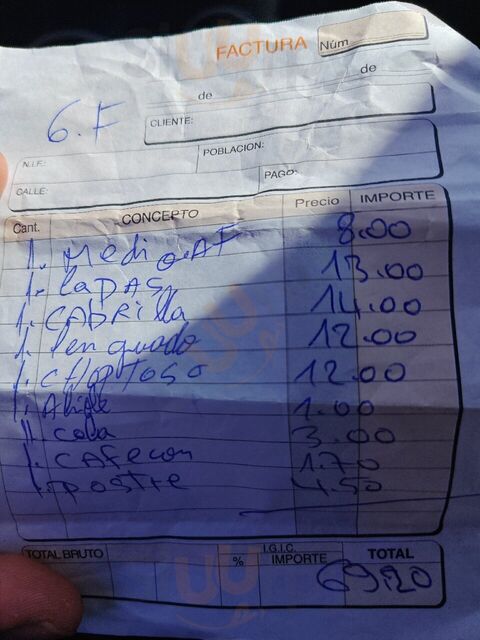 FACTURA Núm
de de
6.F
CLIENTE:
N.I.F.: POBLACION:
CALLE: PAGO:
Cant. CONCEPTO Precio IMPORTE
1. Medio.AF 8.00
1. LAPAS 13.00
1. CABRilla 14.00
1. lenguado 12.00
1. CHOPTOSO 12.00
1. 1.00
11 cola 3.00
1. CAFECON 1.70
1. POSTRE 4.50
TOTAL BRUTO % I.G.I.C. IMPORTE TOTAL
69.20